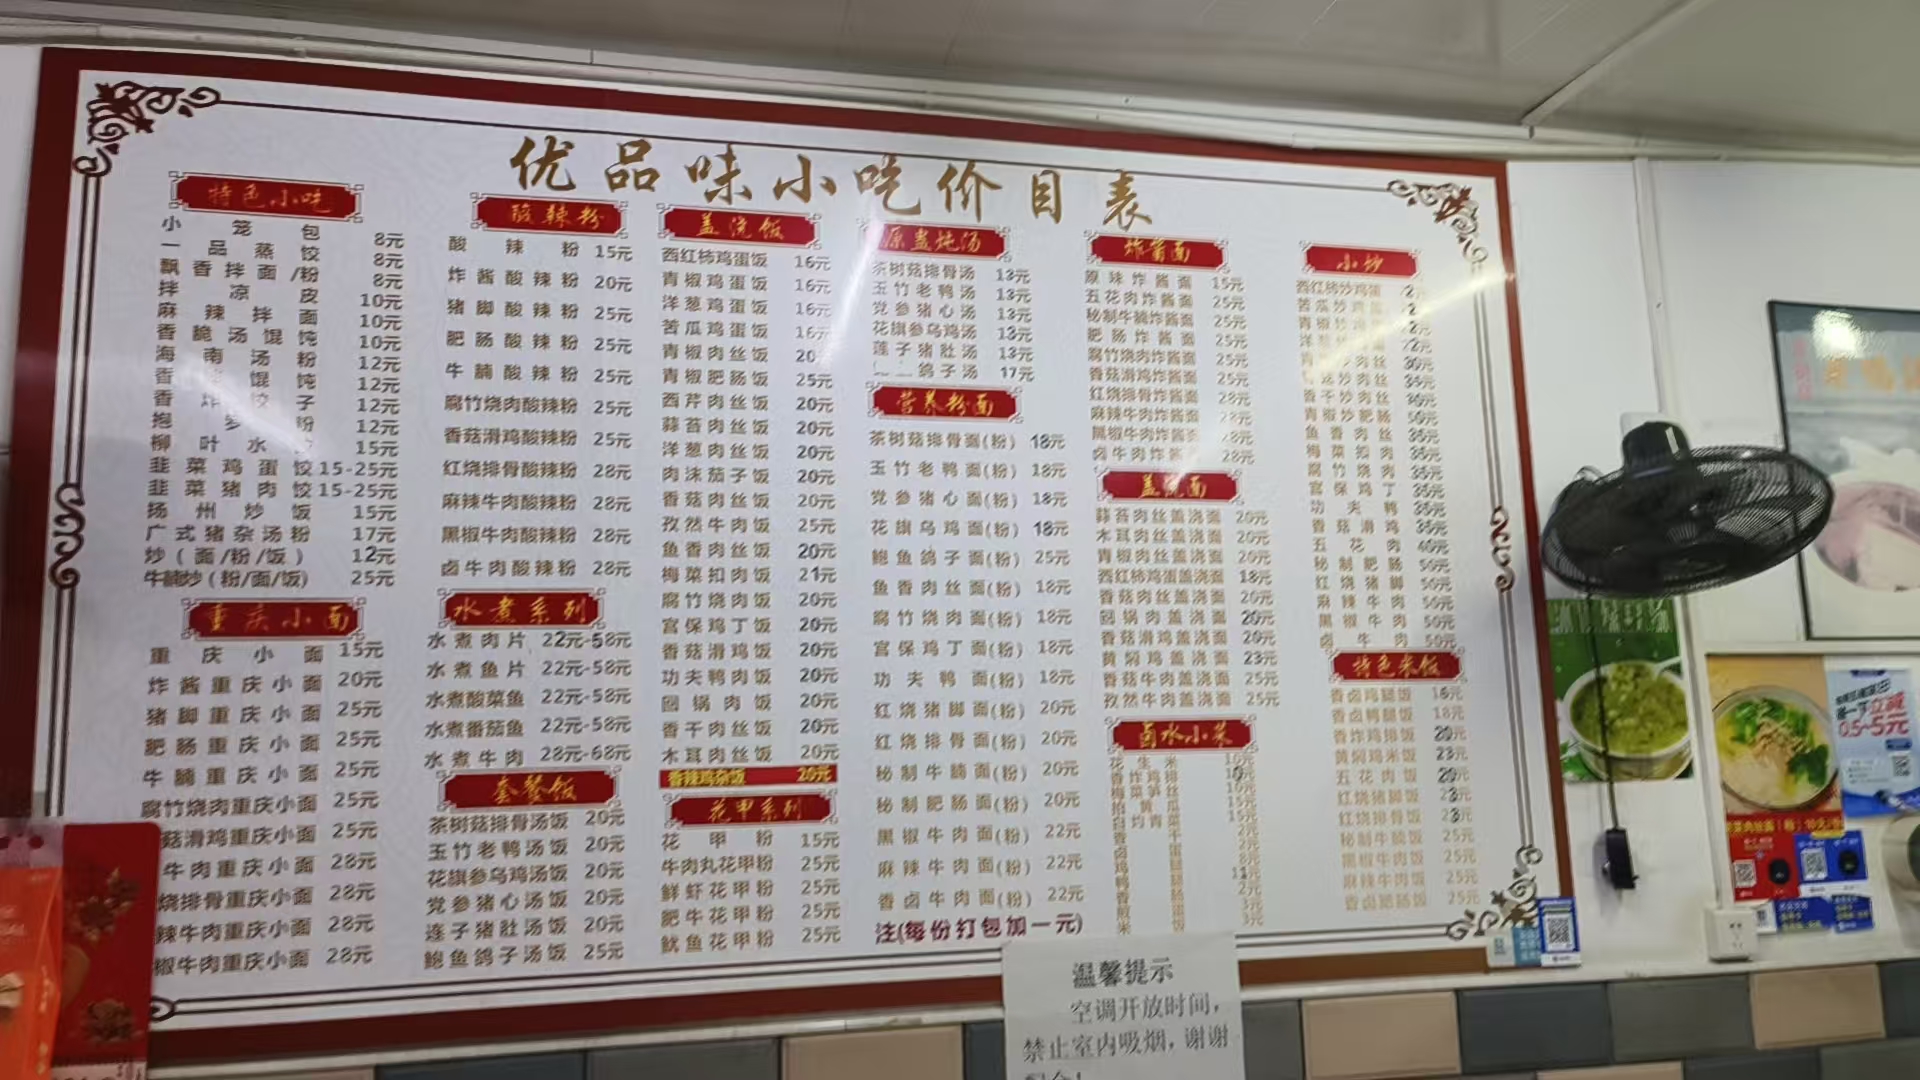 优品味小吃价目表
特色小吃
小笼包 8元
一品蒸饺 8元
飘香拌面/粉 8元
拌凉皮 10元
麻辣拌面 10元
香脆汤馄饨 10元
海南汤粉 12元
香 馄饨 12元
香炸饺子 12元
抱罗粉 12元
柳叶水 15元
韭菜鸡蛋饺 15-25元
韭菜猪肉饺 15-25元
扬州炒饭 15元
广式猪杂汤粉 17元
炒(面/粉/饭) 12元
牛腩炒(粉/面/饭) 25元
重庆小面
重庆小面 15元
炸酱重庆小面 20元
猪脚重庆小面 25元
肥肠重庆小面 25元
牛腩重庆小面 25元
腐竹烧肉重庆小面 25元
菇滑鸡重庆小面 25元
牛肉重庆小面 28元
烧排骨重庆小面 28元
辣牛肉重庆小面 28元
椒牛肉重庆小面 28元
酸辣粉
酸辣粉 15元
炸酱酸辣粉 20元
猪脚酸辣粉 25元
肥肠酸辣粉 25元
牛腩酸辣粉 25元
腐竹烧肉酸辣粉 25元
香菇滑鸡酸辣粉 25元
红烧排骨酸辣粉 28元
麻辣牛肉酸辣粉 28元
黑椒牛肉酸辣粉 28元
卤牛肉酸辣粉 28元
水煮系列
水煮肉片 22元-58元
水煮鱼片 22元-58元
水煮酸菜鱼 22元-58元
水煮番茄鱼 22元-58元
水煮牛肉 28元-68元
套餐饭
茶树菇排骨汤饭 20元
玉竹老鸭汤饭 20元
花旗参乌鸡汤饭 20元
党参猪心汤饭 20元
莲子猪肚汤饭 20元
鲍鱼鸽子汤饭 25元
盖浇饭
西红柿鸡蛋饭 16元
青椒鸡蛋饭 16元
洋葱鸡蛋饭 16元
苦瓜鸡蛋饭 16元
青椒肉丝饭 20
青椒肥肠饭 25元
西芹肉丝饭 20元
蒜苔肉丝饭 20元
洋葱肉丝饭 20元
肉沫茄子饭 20元
香菇肉丝饭 20元
孜然牛肉饭 25元
鱼香肉丝饭 20元
梅菜扣肉饭 21元
腐竹烧肉饭 20元
宫保鸡丁饭 20元
香菇滑鸡饭 20元
功夫鸭肉饭 20元
回锅肉饭 20元
香干肉丝饭 20元
木耳肉丝饭 20元
香辣鸡杂饭 20元
花甲系列
花甲粉 15元
牛肉丸花甲粉 25元
鲜虾花甲粉 25元
肥牛花甲粉 25元
鱿鱼花甲粉 25元
原盅炖汤
茶树菇排骨汤 13元
玉竹老鸭汤 13元
党参猪心汤 13元
花旗参乌鸡汤 13元
莲子猪肚汤 13元
鸽子汤 17元
营养粉面
茶树菇排骨面(粉) 18元
玉竹老鸭面(粉) 18元
党参猪心面(粉) 18元
花旗乌鸡面(粉) 18元
鲍鱼鸽子面(粉) 25元
鱼香肉丝面(粉) 18元
腐竹烧肉面(粉) 18元
宫保鸡丁面(粉) 18元
功夫鸭面(粉) 18元
红烧猪脚面(粉) 20元
红烧排骨面(粉) 20元
秘制牛腩面(粉) 20元
秘制肥肠面(粉) 20元
黑椒牛肉面(粉) 22元
麻辣牛肉面(粉) 22元
香卤牛肉面(粉) 22元
注(每份打包加一元)
炸酱面
原辣炸酱面 15元
五花肉炸酱面 25元
秘制牛腩炸酱面 25元
肥肠炸酱面 25元
腐竹烧肉炸酱面 25元
香菇滑鸡炸酱面 25元
红烧排骨炸酱面 28元
麻辣牛肉炸酱面 28元
黑椒牛肉炸酱面 28元
卤牛肉炸酱面 28元
盖浇面
蒜苔肉丝盖浇面 20元
木耳肉丝盖浇面 20元
青椒肉丝盖浇面 20元
西红柿鸡蛋盖浇面 18元
香菇肉丝盖浇面 20元
回锅肉盖浇面 20元
香菇滑鸡盖浇面 20元
黄焖鸡盖浇面 23元
香菇牛肉盖浇面 25元
孜然牛肉盖浇面 25元
卤水小菜
花生米 10元
香炸鸡排 10元
梅菜笋丝 10元
拍黄瓜 15元
小炒
西红柿炒鸡蛋
苦瓜炒鸡蛋
青椒炒鸡蛋
炒肉丝 30元
炒肉丝 35元
香干炒肉丝 30元
青椒炒肥肠 50元
鱼香肉丝 35元
梅菜扣肉 35元
腐竹烧肉 35元
宫保鸡丁 35元
功夫鸭 35元
香菇滑鸡 35元
五花肉 40元
秘制肥肠 50元
红烧猪脚 50元
麻辣牛肉 50元
黑椒牛肉 50元
卤牛肉 50元
特色米饭
香卤鸡腿饭 16元
香卤鸭腿饭 18元
香炸鸡排饭 20元
黄焖鸡米饭 23元
五花肉饭 20元
红烧猪脚饭 23元
红烧排骨饭 23元
秘制牛腩饭 25元
黑椒牛肉饭 25元
麻辣牛肉饭 25元
香卤腿肠饭 25元
温馨提示
空调开放时间,
禁止室内吸烟,谢谢
立减
0.5-5元